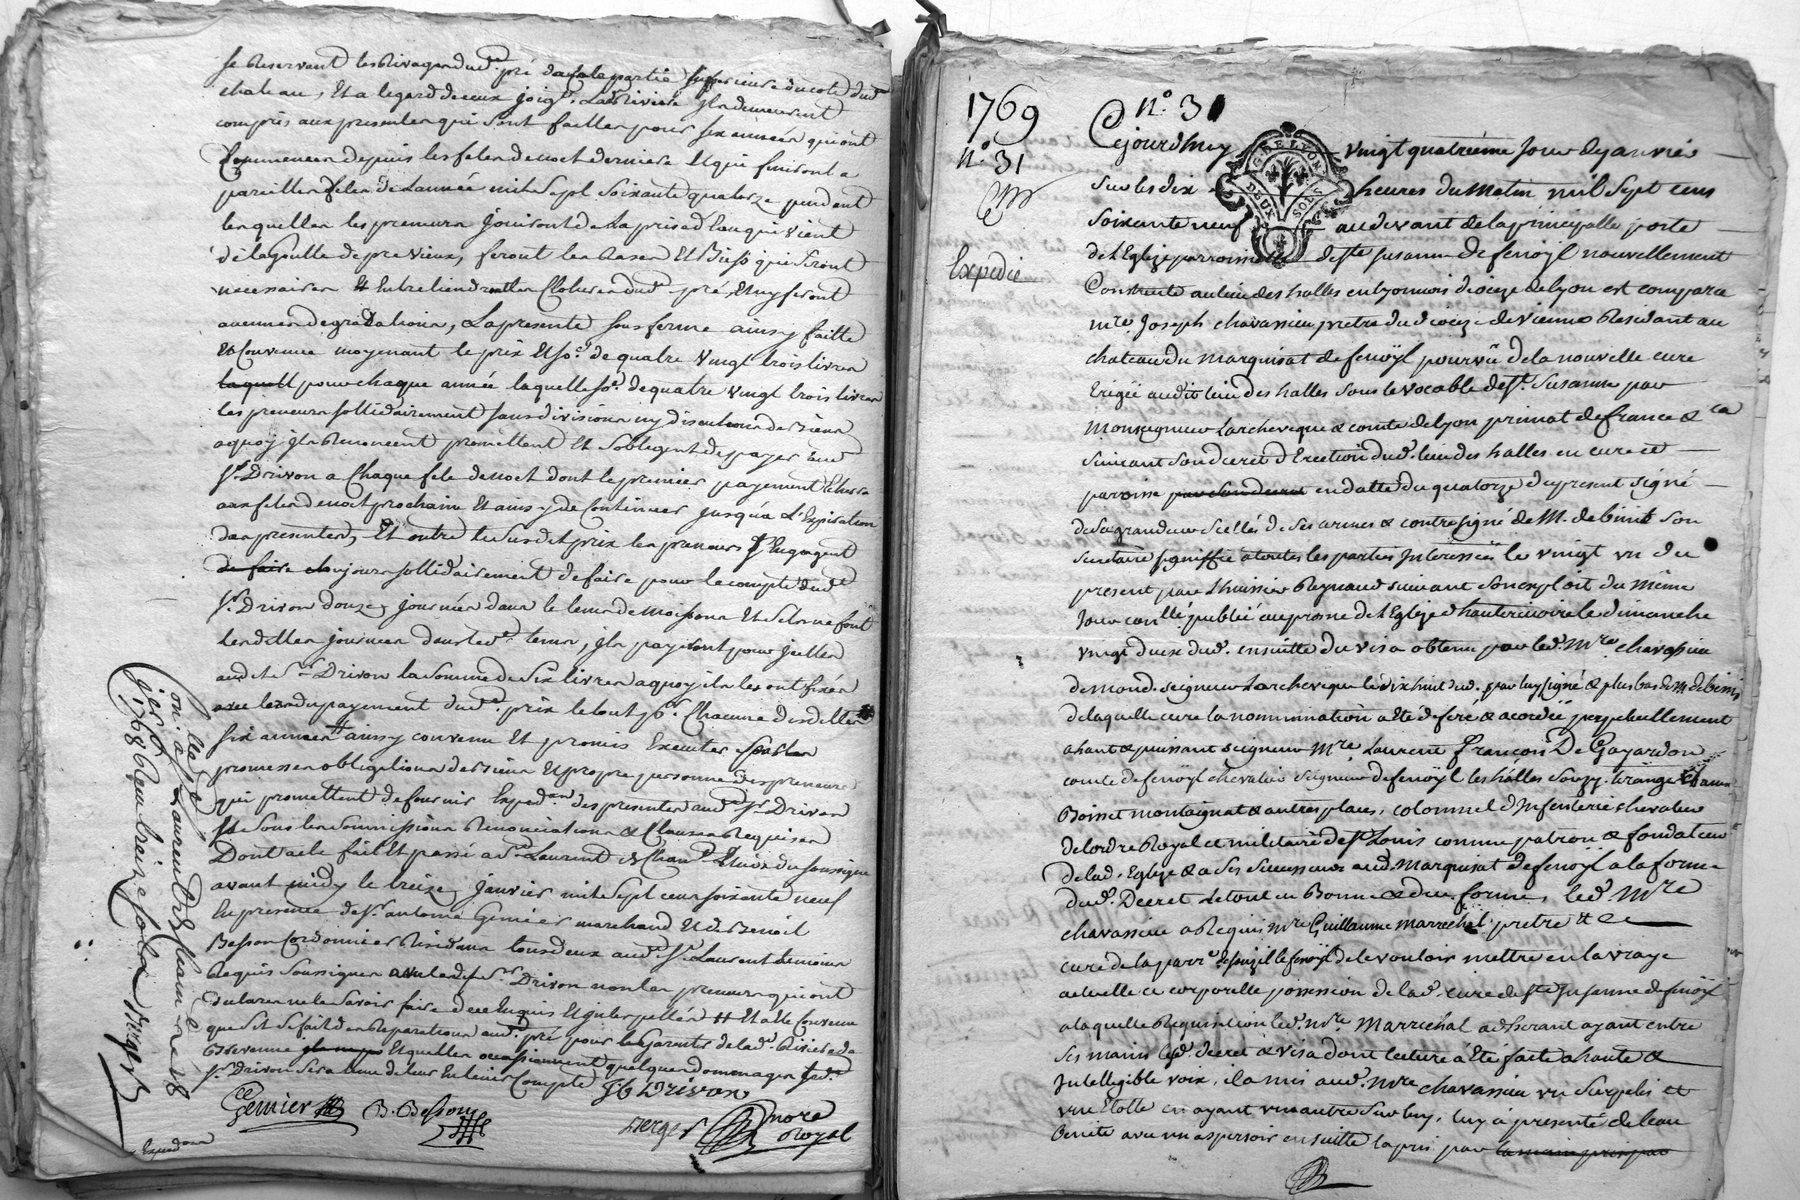 se Reservant les Rivages dud. pré dans la partie superieure du coté dud.
chateau, Et a legard de ceux joig.t La Riviere ils demeurent
compris aux presentes qui sont faittes pour six années qui ont
Commencées depuis les fetes de noel derniere Et qui finiront a
pareilles fetes de Lannée mil Sept Soixante quatorze pendant
lesquelles les preneurs jouiront de La prise d'Eau qui vient
necessaires Et Entretiendront les Clotures dud. pré, Et ny feront
aucunes degradations, La presente sous ferme ainsy faitte
Et Convenue moyenant le prix Et so.e de quatre Vingt trois livres
pour chaque année laquelle so.e de quatre Vingt trois livres
les preneurs sollidairement sans division ny discution de Biens
a quoy ils Renoncent promettent Et s'obligent de payer aud.
S.r Drivon a Chaque fete de noel dont le premier payement Echera
aux fetes de noel prochaine Et ainsy de Continuer jusqu'a L'Expiration
des presentes, Et outre le susdit prix les preneurs s'Engagent
de faire sollidairement de faire pour le compte dud.
S.r Drivon douze journées dans le tems de moissons Et si ils ne font
lesdittes journées dans led. tems, ils payeront pour icelles
audit S.r Drivon la somme de six livres a quoy ils les ont fixées
lors du payement dud. prix le tout p.r Chacune desdittes
six années ainsy convenu Et promis Executer
promesses obligations de Biens Et propre personne des preneurs
qui promettent de fournir Exped.on des presentes aud. S.r Drivon
sous les soumissions Renonciations & Clauses Requises
Dont acte fait Et passé a S.t Laurent de Cham.t Etude du soussigné
avant midy le treize janvier mil Sept cent soixante neuf
En presence de S.r antoine Gemier marchand Et de Benoit
Besson Cordonnier Residans tous deux aud. S.t Laurent temoins
Requis soussignés avec led. S.r Drivon non les preneurs qui ont
declarés ne le savoir faire de ce Enquis Et interpellés # Et a Eté Convenu
que s'il se fait des Reparations aud. pré pour le Garantir de lad. Riviere
S.r Drivon sera tenu de leur En tenir Compte
Gemier
B. Besson
Jb Drivon
Verger
nore
Royal
Con.lé a S.t Laurent de Cham.t le 18
janvier 1768 Reçu treize sols
Exped.on
1769
n.o 31
Expedié
n.o 31
Cejourd'huy vingt quatriéme Jour de janvier
GNRE LYON
DEUX SOLS
sur les dix heures du matin mil sept cens
soixante neuf au devant de la principalle porte
de l'Eglize parroissialle de S.te Susanne de fenoÿl nouvellement
Construite au lieu des halles en lyonnois dioceze de lyon est comparu
m.re Joseph chavassieu pretre du dioceze de vienne Residant au
chateau du marquisat de fenoÿl pourvû de la nouvelle cure
Erigée audit lieu des halles sous le vocable de S.te Susanne par
Monseigneur L'archeveque & comte de lyon primat de france & ca
suivant son decret d'Erection dud. lieu des halles en cure et
parroisse par son decret en datte du quatorze du present signé
de sa grandeur scellé de ses armes & contresigné de M. de binis son
secretaire signiffié a toutes les parties Interessées le vingt un du
present par L'huissier Reynaud suivant son exploit du même
Jour con.llé publié au prone de l'Eglize d'hauterivoire le dimanche
vingt deux dud. ensuitte du visa obtenu par led. M.re chavassieu
de mond. seigneur L'archeveque le dix huit dud. par luy signé & plus bas de M. de binis
de laquelle cure la nommination a Eté deferé & acordée perpetuellement
a haut & puissant seigneur M.re Laurent françois De Gayardon
comte de fenoÿl chevalier seigneur de fenoÿl les halles Souzy
Boisset montaignat & autres places, colonnel d'Infenterie chevalier
de l'ordre Royal et militaire de S.t Louis comme patron & fondateur
de lad. Eglize & a ses successeurs aud. marquisat de fenoÿl a la forme
dud. Decret le tout en Bonne & due forme, led. M.re
chavassieu a Requis m.re Guillaume marrechal pretre & 
curé de la parr.e de souzi le fenoÿl de le vouloir mettre en la vraye
actuelle et corporelle possession de lad. cure de S.te Susanne de fenoÿl
a laquelle Requisition led. m.re Marrechal adherant ayant entre
ses mains led. decret & visa dont lecture a Eté faite a haute &
Intelligible voix, il a mis aud. M.re chavassieu un surpelis et
une Etolle en ayant une autre sur luy, luy a presenté de l'eau
Benite avec un aspersoir ensuitte la pris par la main